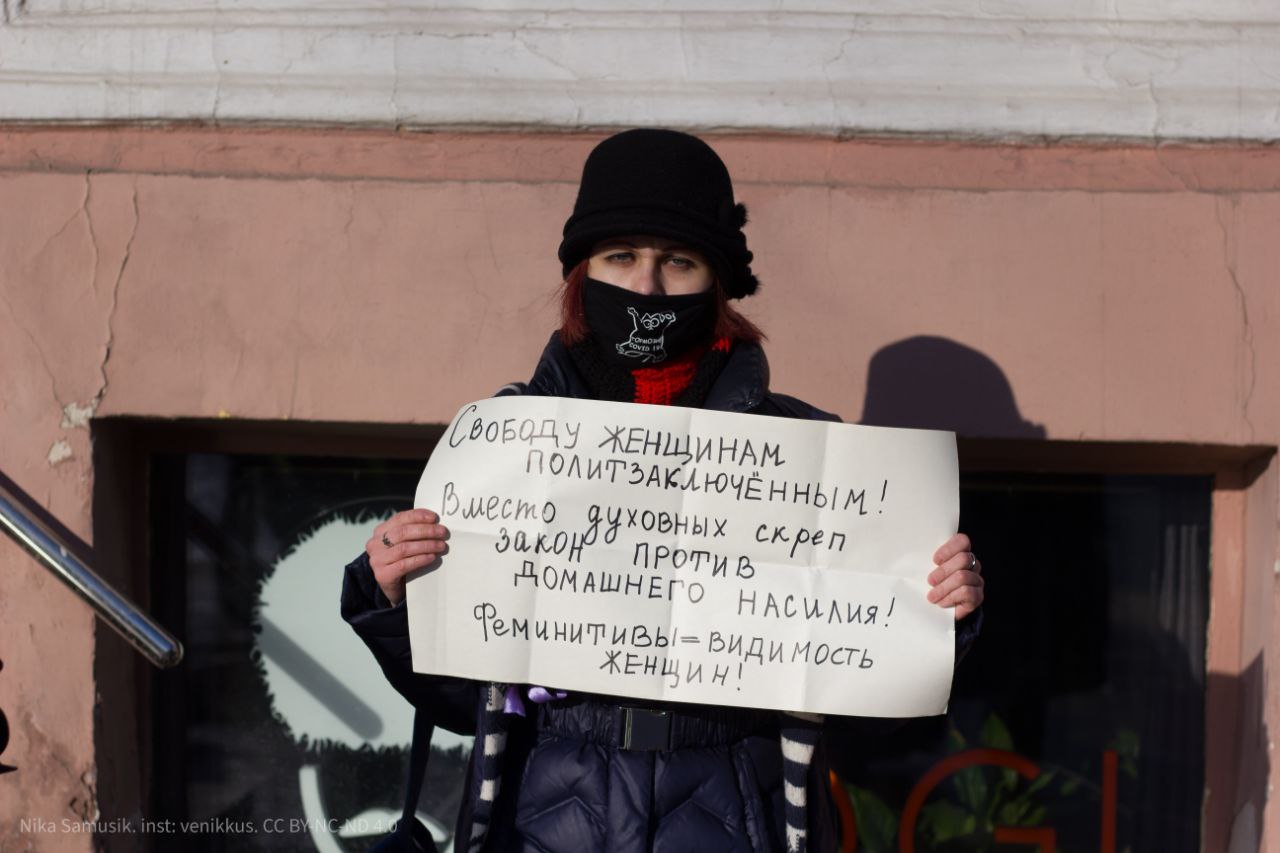 ТОРМОЗИ
COVID 19
Свободу женщинам
политзаключённым!
Вместо духовных скреп
закон против
домашнего насилия!
Феминитивы=видимость
женщин!
Nika Samusik. inst: venikkus. CC BY-NC-ND 4.0